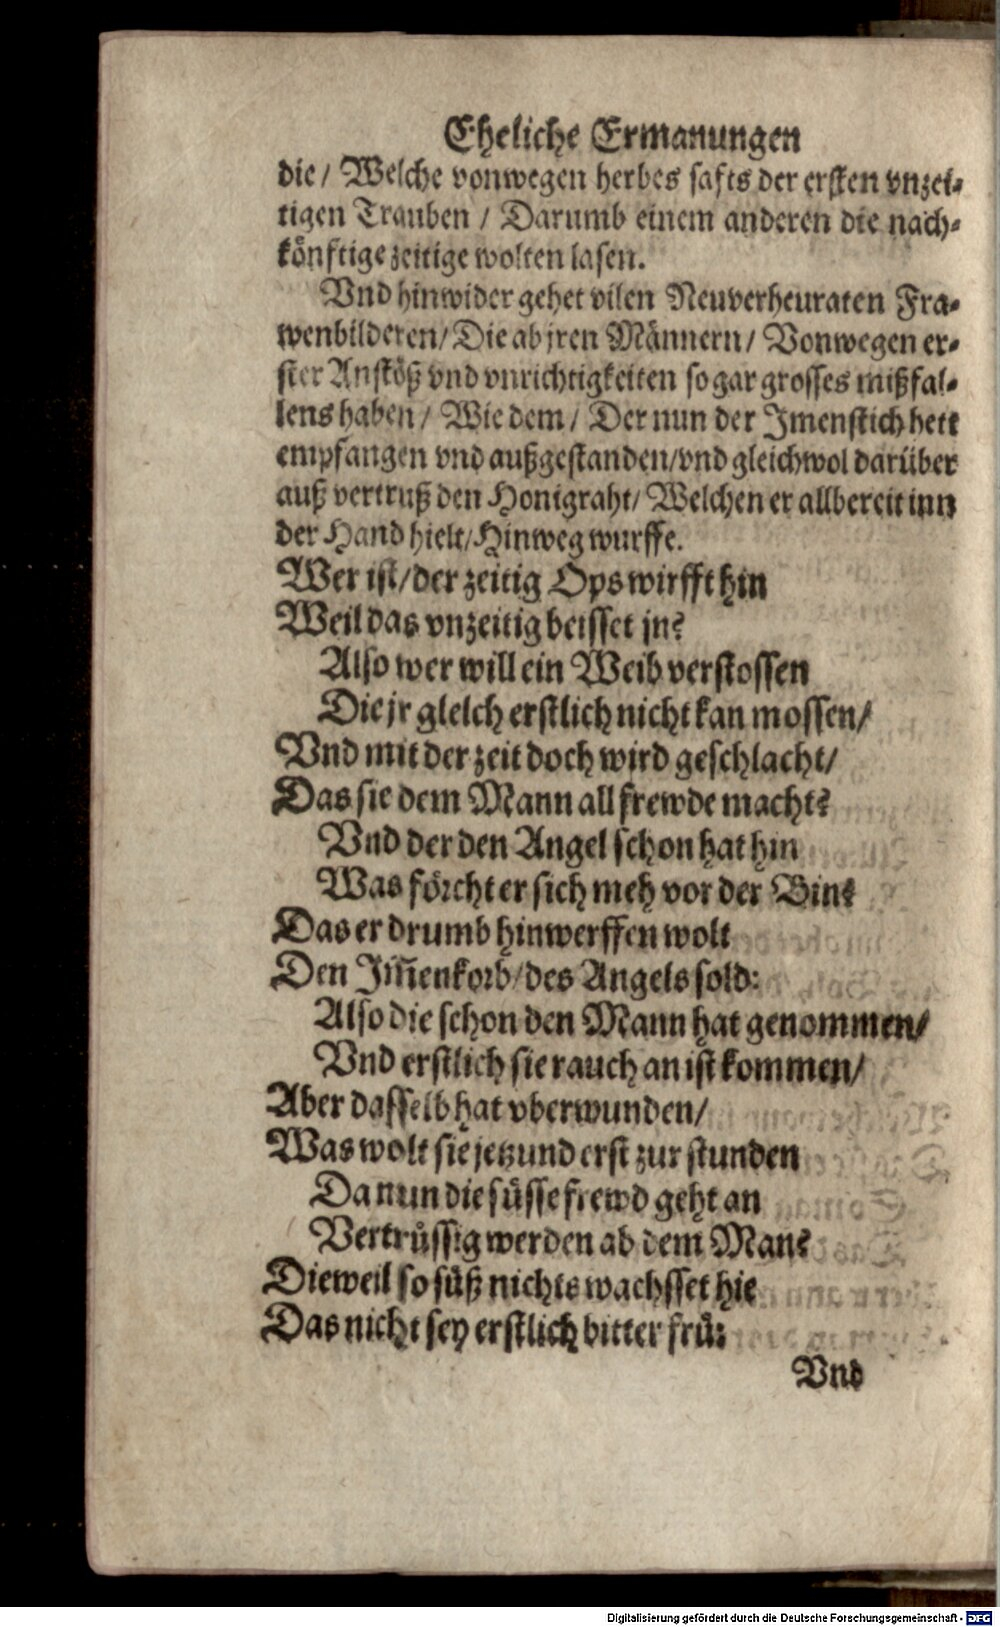 Eheliche Ermanungen
die / Welche vonwegen herbes safts der ersten vnzei-
tigen Trauben / Darumb einem anderen die nach-
könftige zeitige wolten lasen.
Vnd hinwider gehet vilen Neuverheuraten Fra-
wenbilderen / Die ab jren Männern / Vonwegen er-
ster Anstöß vnd vnrichtigkeiten so gar grosses mißfal-
lens haben / Wie dem / Der nun der Imenstich hett
empfangen vnd außgestanden / vnd gleichwol darüber
auß vertruß den Honigraht / Welchen er allbereit inn
der Hand hielt / Hinweg wurffe.
Wer ist / der zeitig Ops wirfft hin
Weil das vnzeitig beisset jn?
Also wer will ein Weib verstossen
Die jr gleich erstlich nicht kan mossen /
Vnd mit der zeit doch wird geschlacht /
Das sie dem Mann all frewde macht?
Vnd der den Angel schon hat hin
Was förcht er sich meh vor der Bin?
Das er drumb hinwerffen wolt
Den Im̃enkorb / des Angels sold:
Also die schon den Mann hat genommen /
Vnd erstlich sie rauch an ist kommen /
Aber dasselb hat vberwunden /
Was wolt sie jetzund erst zur stunden
Da nun die süsse frewd geht an
Vertrüssig werden ab dem Man?
Dieweil so süß nichts wachsset hie
Das nicht sey erstlich bitter frü:
Vnd
Digitalisierung gefördert durch die Deutsche Forschungsgemeinschaft - DFG